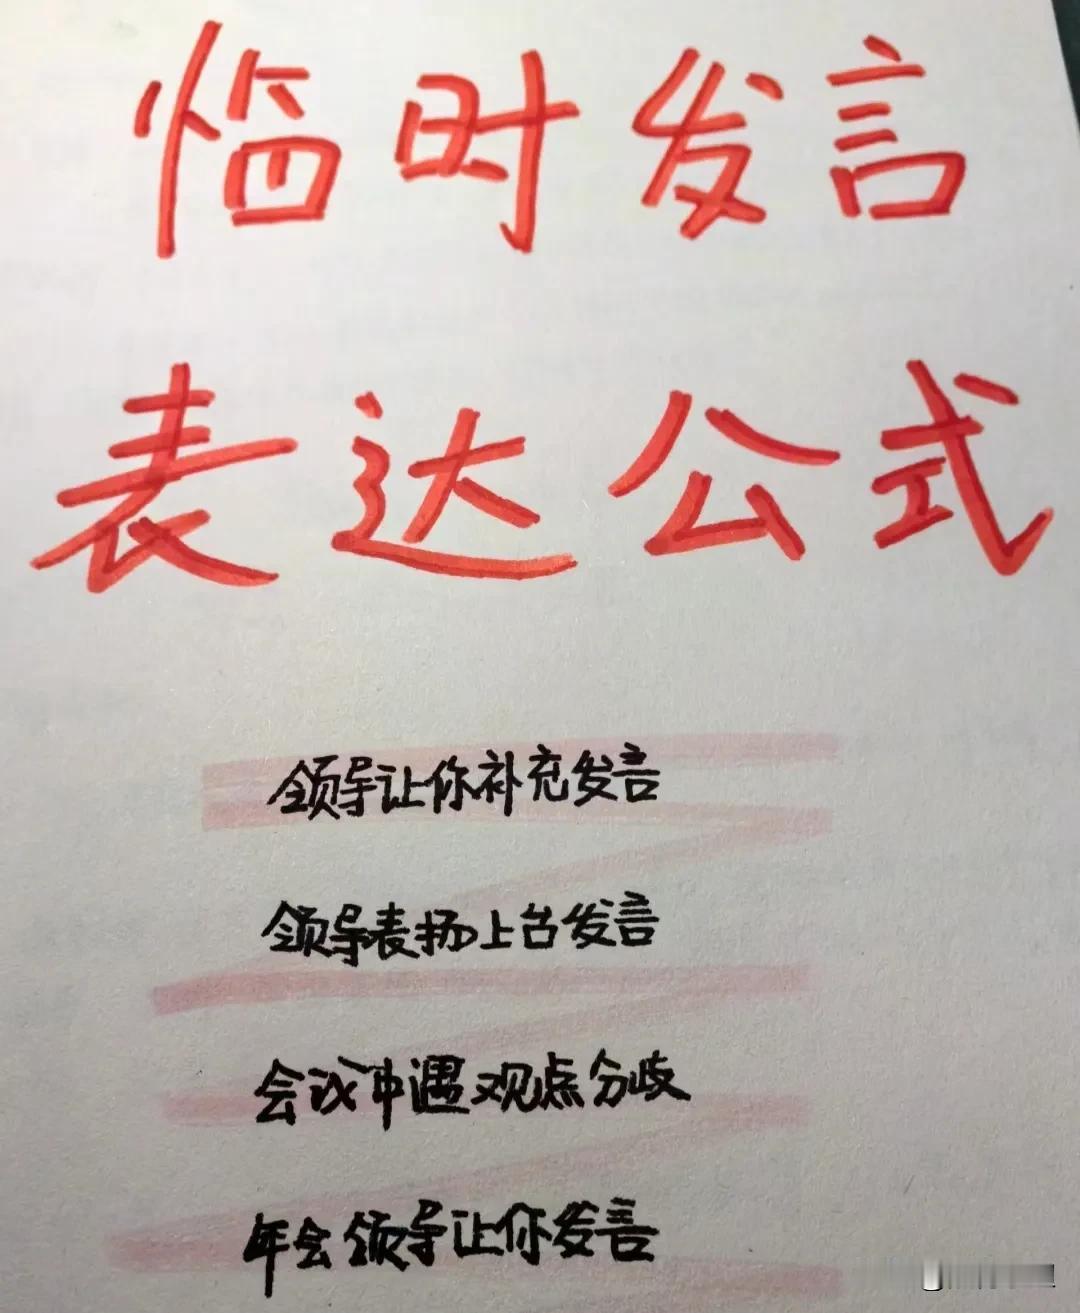 临时发言
表达公式
领导让你补充发言
领导表扬上台发言
会议中遇观点分歧
年会领导让你发言